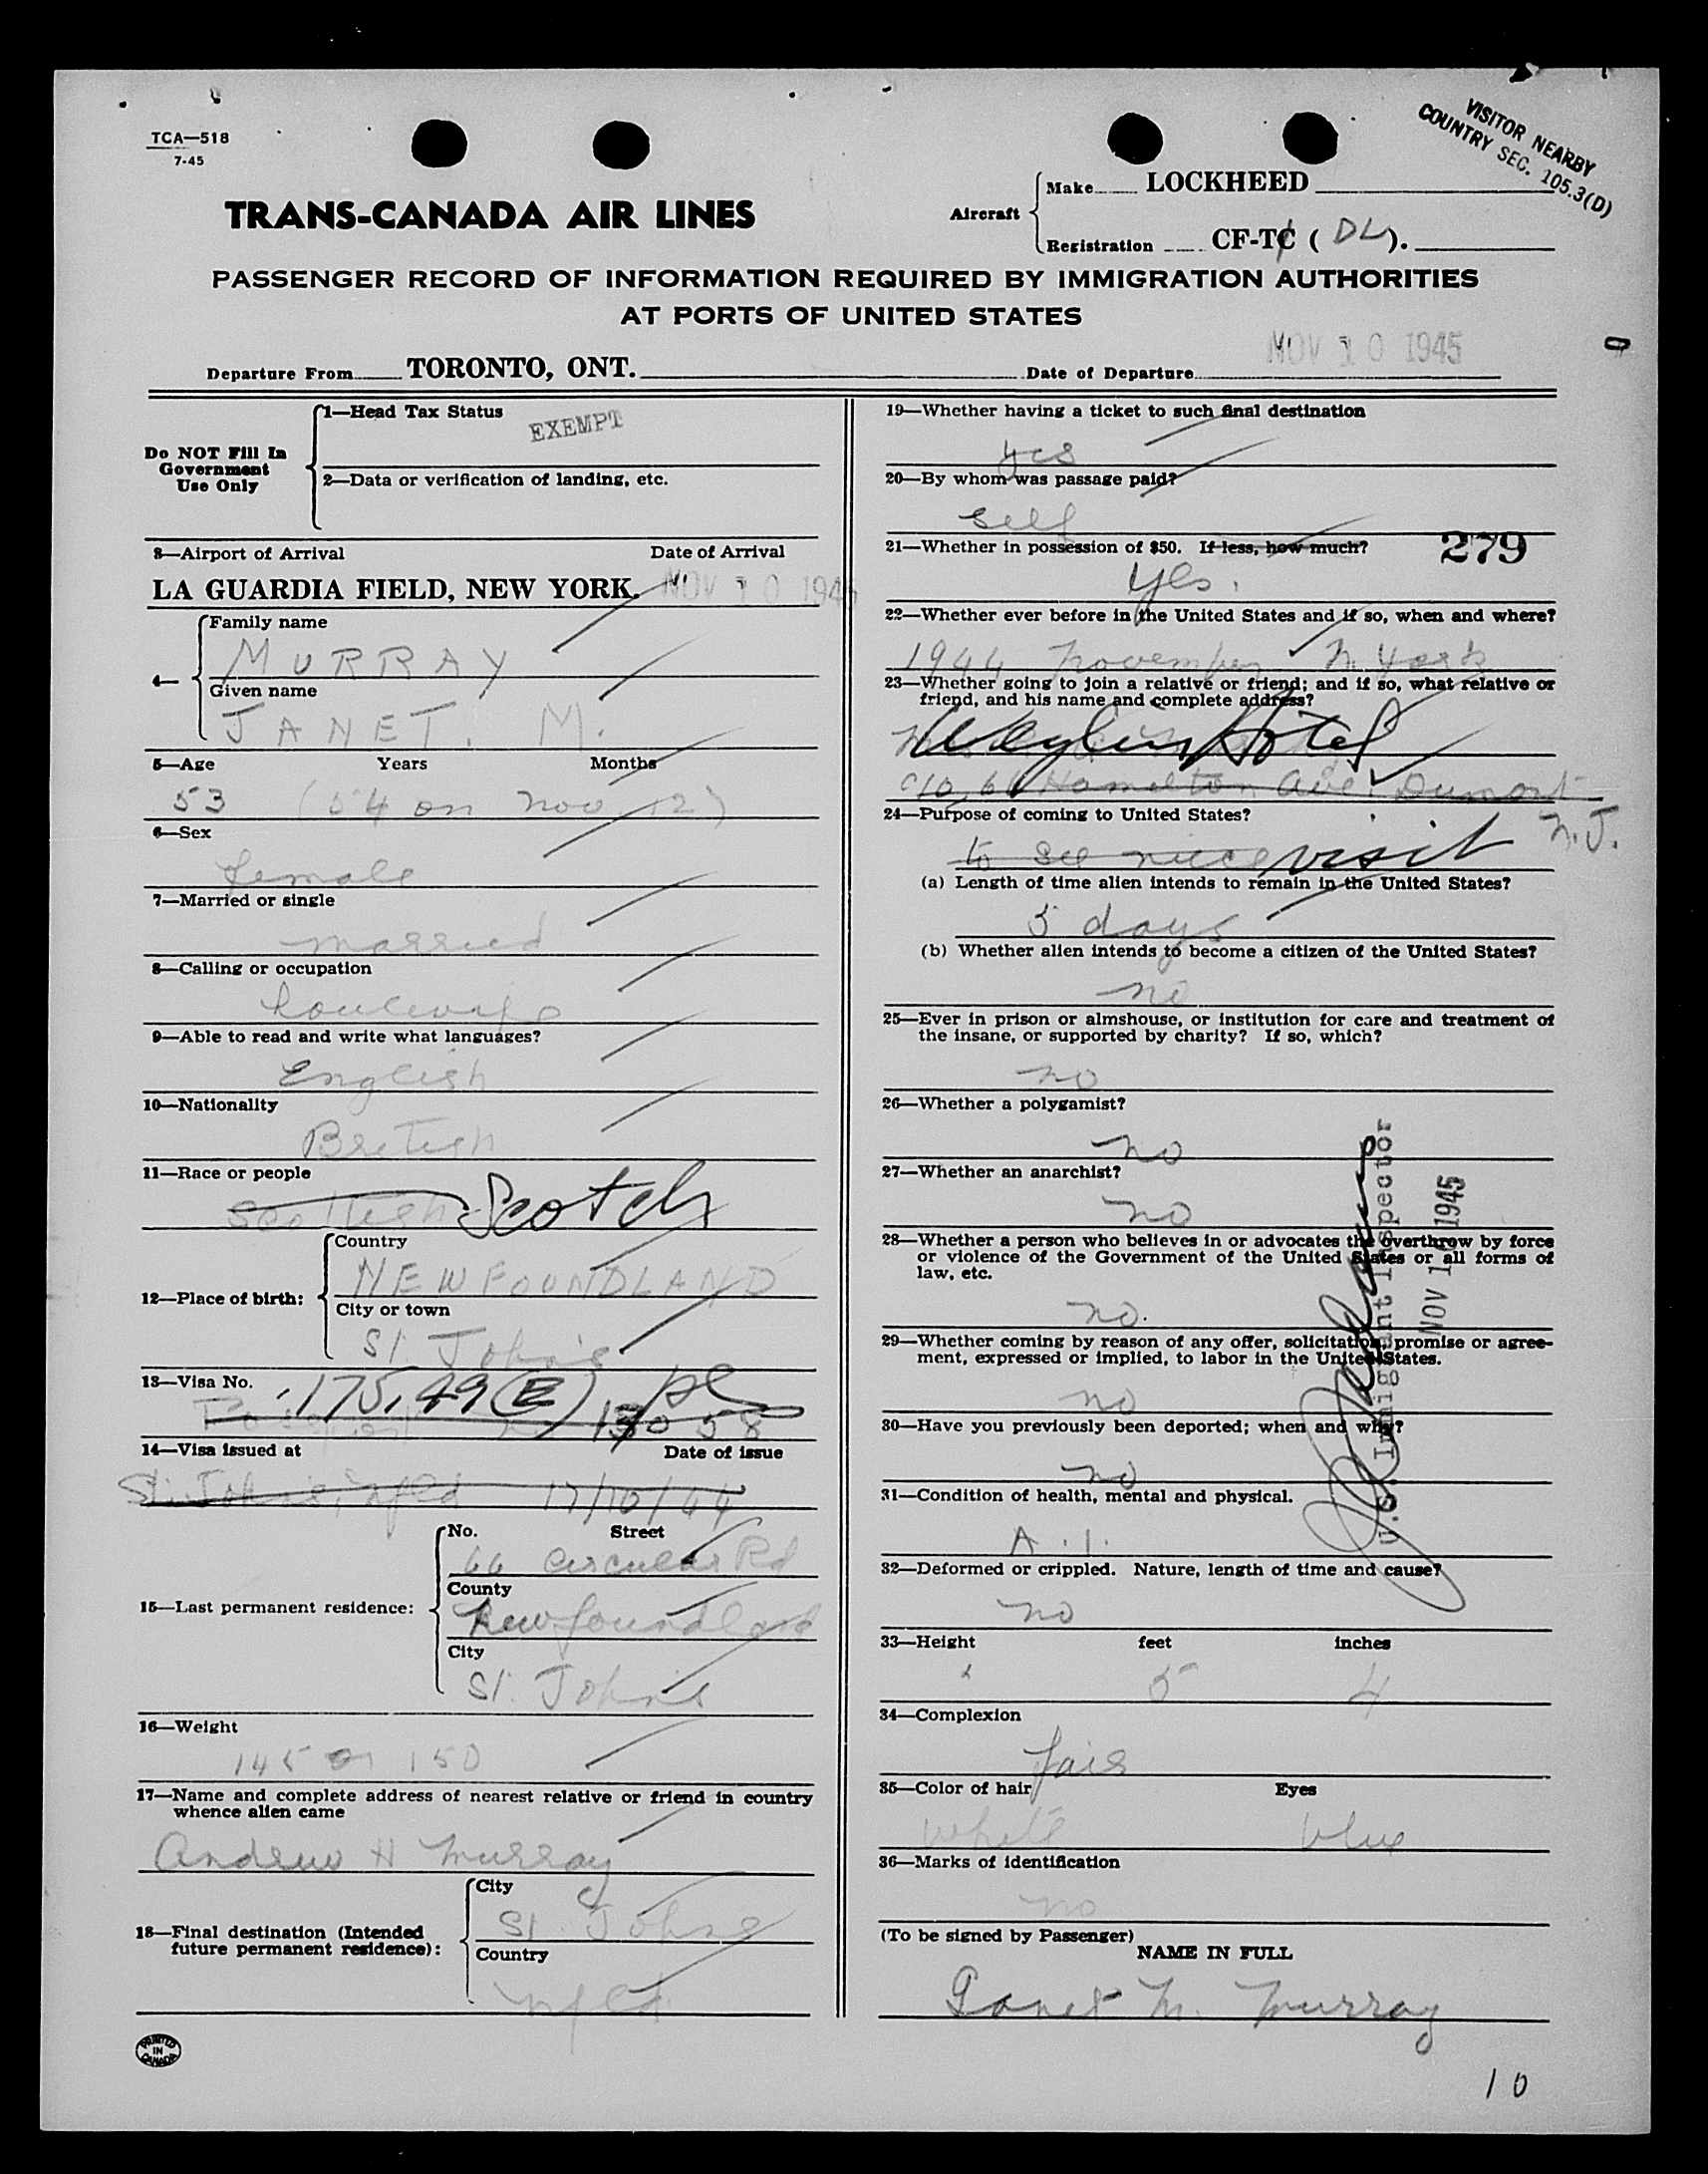 TCA—518
7-45
VISITOR NEARBY
COUNTRY SEC. 105.3(D)
TRANS-CANADA AIR LINES
Aircraft
Make LOCKHEED
Registration CF-TC ( DL ).
PASSENGER RECORD OF INFORMATION REQUIRED BY IMMIGRATION AUTHORITIES
AT PORTS OF UNITED STATES
Departure From TORONTO, ONT. Date of Departure NOV 10 1945
Do NOT Fill In
Government
Use Only
1—Head Tax Status
EXEMPT
2—Data or verification of landing, etc.
3—Airport of Arrival Date of Arrival
LA GUARDIA FIELD, NEW YORK. NOV 10 194
4—
Family name
MURRAY
Given name
JANET. M.
5—Age Years Months
53 (54 on Nov 12)
6—Sex
female
7—Married or single
married
8—Calling or occupation
housewife
9—Able to read and write what languages?
English
10—Nationality
British
11—Race or people
Scottish Scotch
12—Place of birth:
Country
NEWFOUNDLAND
City or town
St John's
13—Visa No.
175.49(E)
14—Visa issued at Date of issue
St. John's, Nfld 17/10/44
15—Last permanent residence:
No. Street
66 Circular Rd
County
Newfoundland
City
St. Johns
16—Weight
145 or 150
17—Name and complete address of nearest relative or friend in country
whence alien came
Andrew H Murray
18—Final destination (Intended
future permanent residence):
City
St. Johns
Country
Nfld
PRINTED
IN
CANADA
19—Whether having a ticket to such final destination
yes
20—By whom was passage paid?
self
21—Whether in possession of $50. If less, how much? 279
yes.
22—Whether ever before in the United States and if so, when and where?
1944 November N. York
23—Whether going to join a relative or friend; and if so, what relative or
friend, and his name and complete address?
Weylin Hotel
c/o 66 Hamelton Ave. Dumont
N.J.
24—Purpose of coming to United States?
to see niece visit
(a) Length of time alien intends to remain in the United States?
5 days
(b) Whether alien intends to become a citizen of the United States?
no
25—Ever in prison or almshouse, or institution for care and treatment of
the insane, or supported by charity? If so, which?
no
26—Whether a polygamist?
no
27—Whether an anarchist?
no
28—Whether a person who believes in or advocates the overthrow by force
or violence of the Government of the United States or all forms of
law, etc.
no.
29—Whether coming by reason of any offer, solicitation, promise or agree-
ment, expressed or implied, to labor in the United States.
no
30—Have you previously been deported; when and why?
no
31—Condition of health, mental and physical.
A.1.
32—Deformed or crippled. Nature, length of time and cause?
no
U.S. Immigrant Inspector
NOV 10 1945
33—Height feet inches
5 4
34—Complexion
fair
35—Color of hair Eyes
white blue
36—Marks of identification
no
(To be signed by Passenger)
NAME IN FULL
Janet M. Murray
10